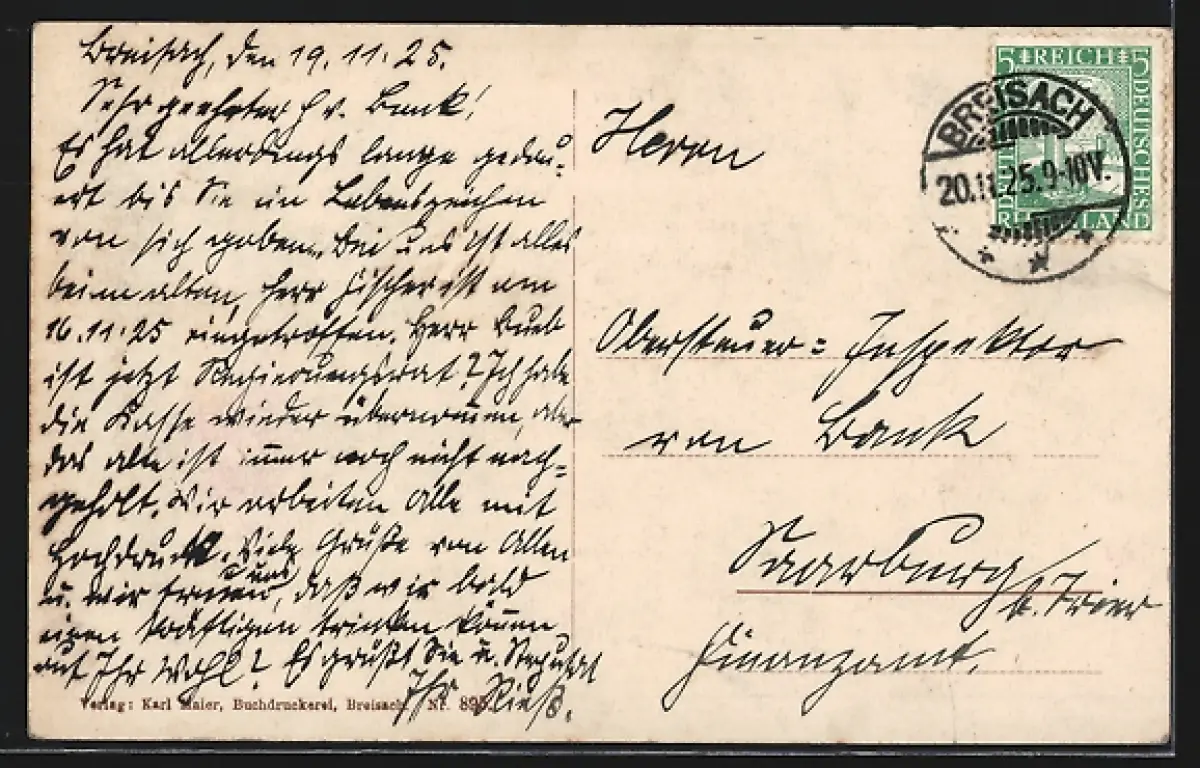 Breisach, den 19.11.25.
Sehr geehrter Hr. v. Bank!
Es hat allerdings lange gedau-
ert bis Sie ein Lebenszeichen
von sich gaben. Bei uns ist alles
beim alten, Herr Fischer ist am
16.11.25 eingetroffen. Herr
ist jetzt Regierungsrat? Ich habe
die Kasse wieder übernommen, aber
das alte ist immer noch nicht nach-
geholt. Wir arbeiten Alle mit
Hochdruck. Viele Grüße von Allen
u. wir freuen uns, daß wir bald
einen kräftigen trinken können
auf Ihr Wohl? Es grüßt Sie u.
Ihr Rieß.
Verlag: Karl Maier, Buchdruckerei, Breisach. Nr. 895.
Herrn
Obersteuer-Inspektor
von Bank
Saarburg
b. Trier
Finanzamt.
5 REICH 5
DEUTSCHES
RHEINLAND
BREISACH
20.11.25.9-10V.